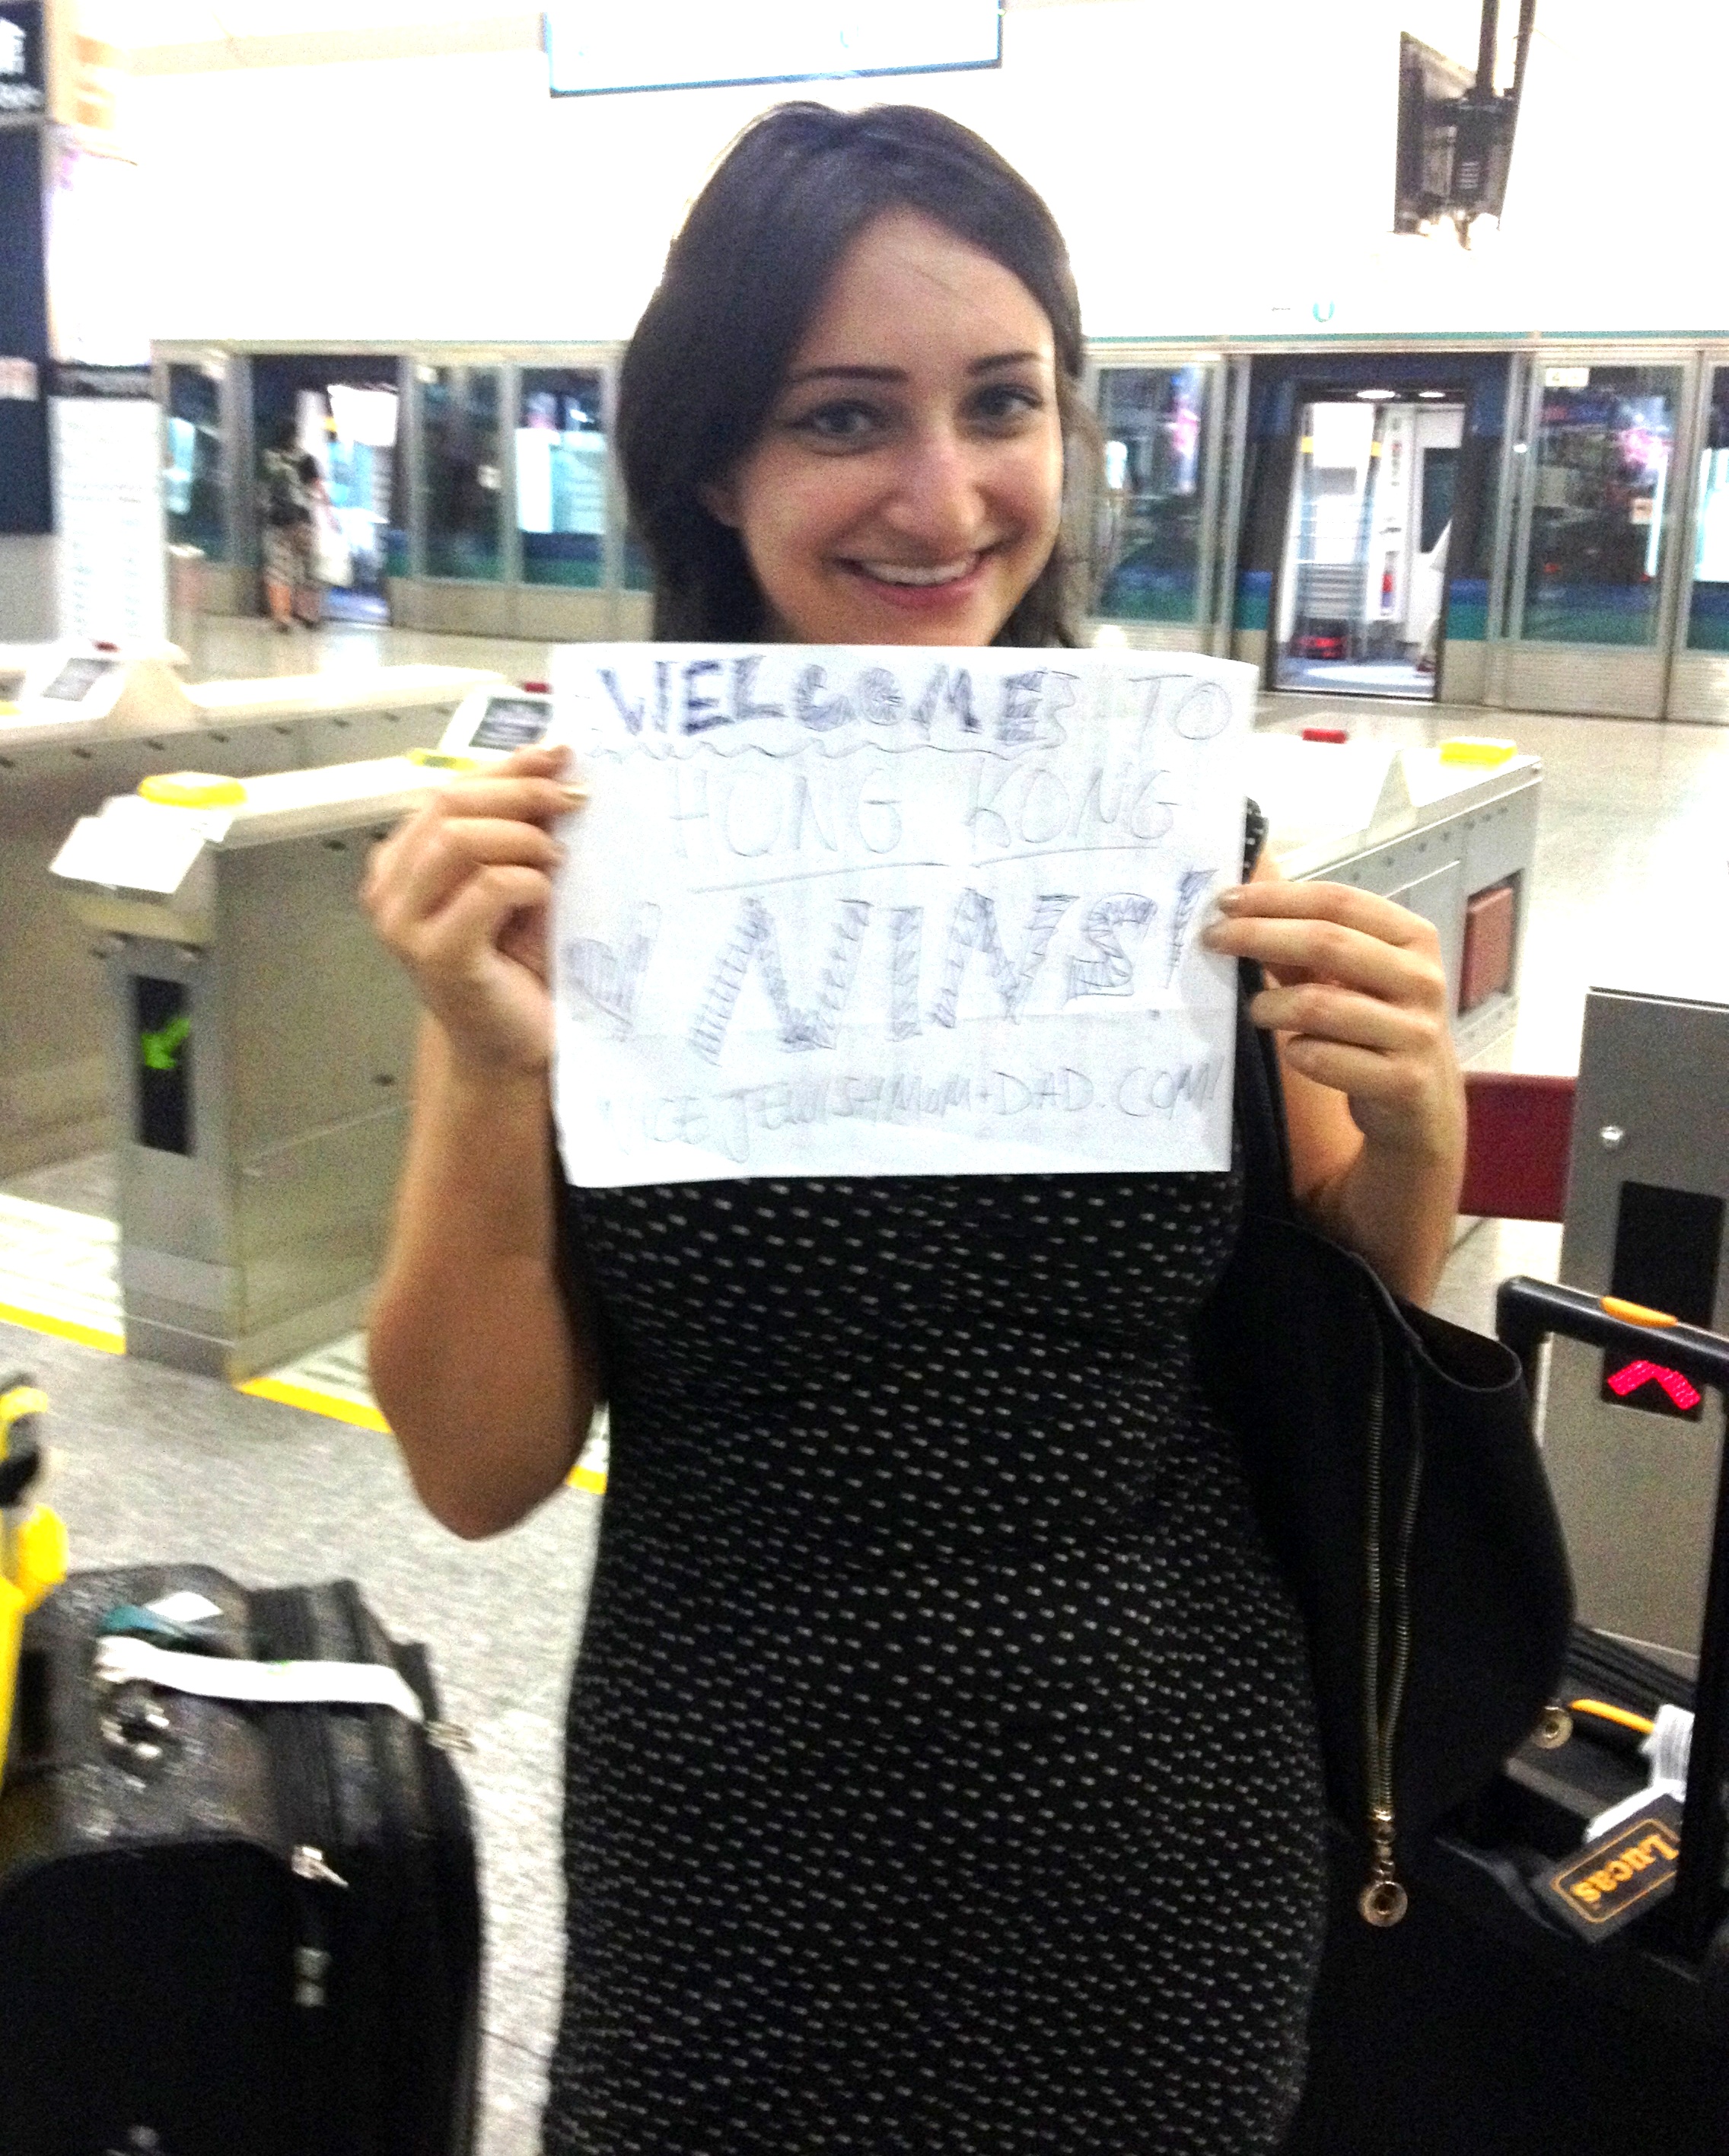 WELCOME TO
HONG KONG
NINS!
NICEJEWISHMOM+DAD.COM!
Lucas